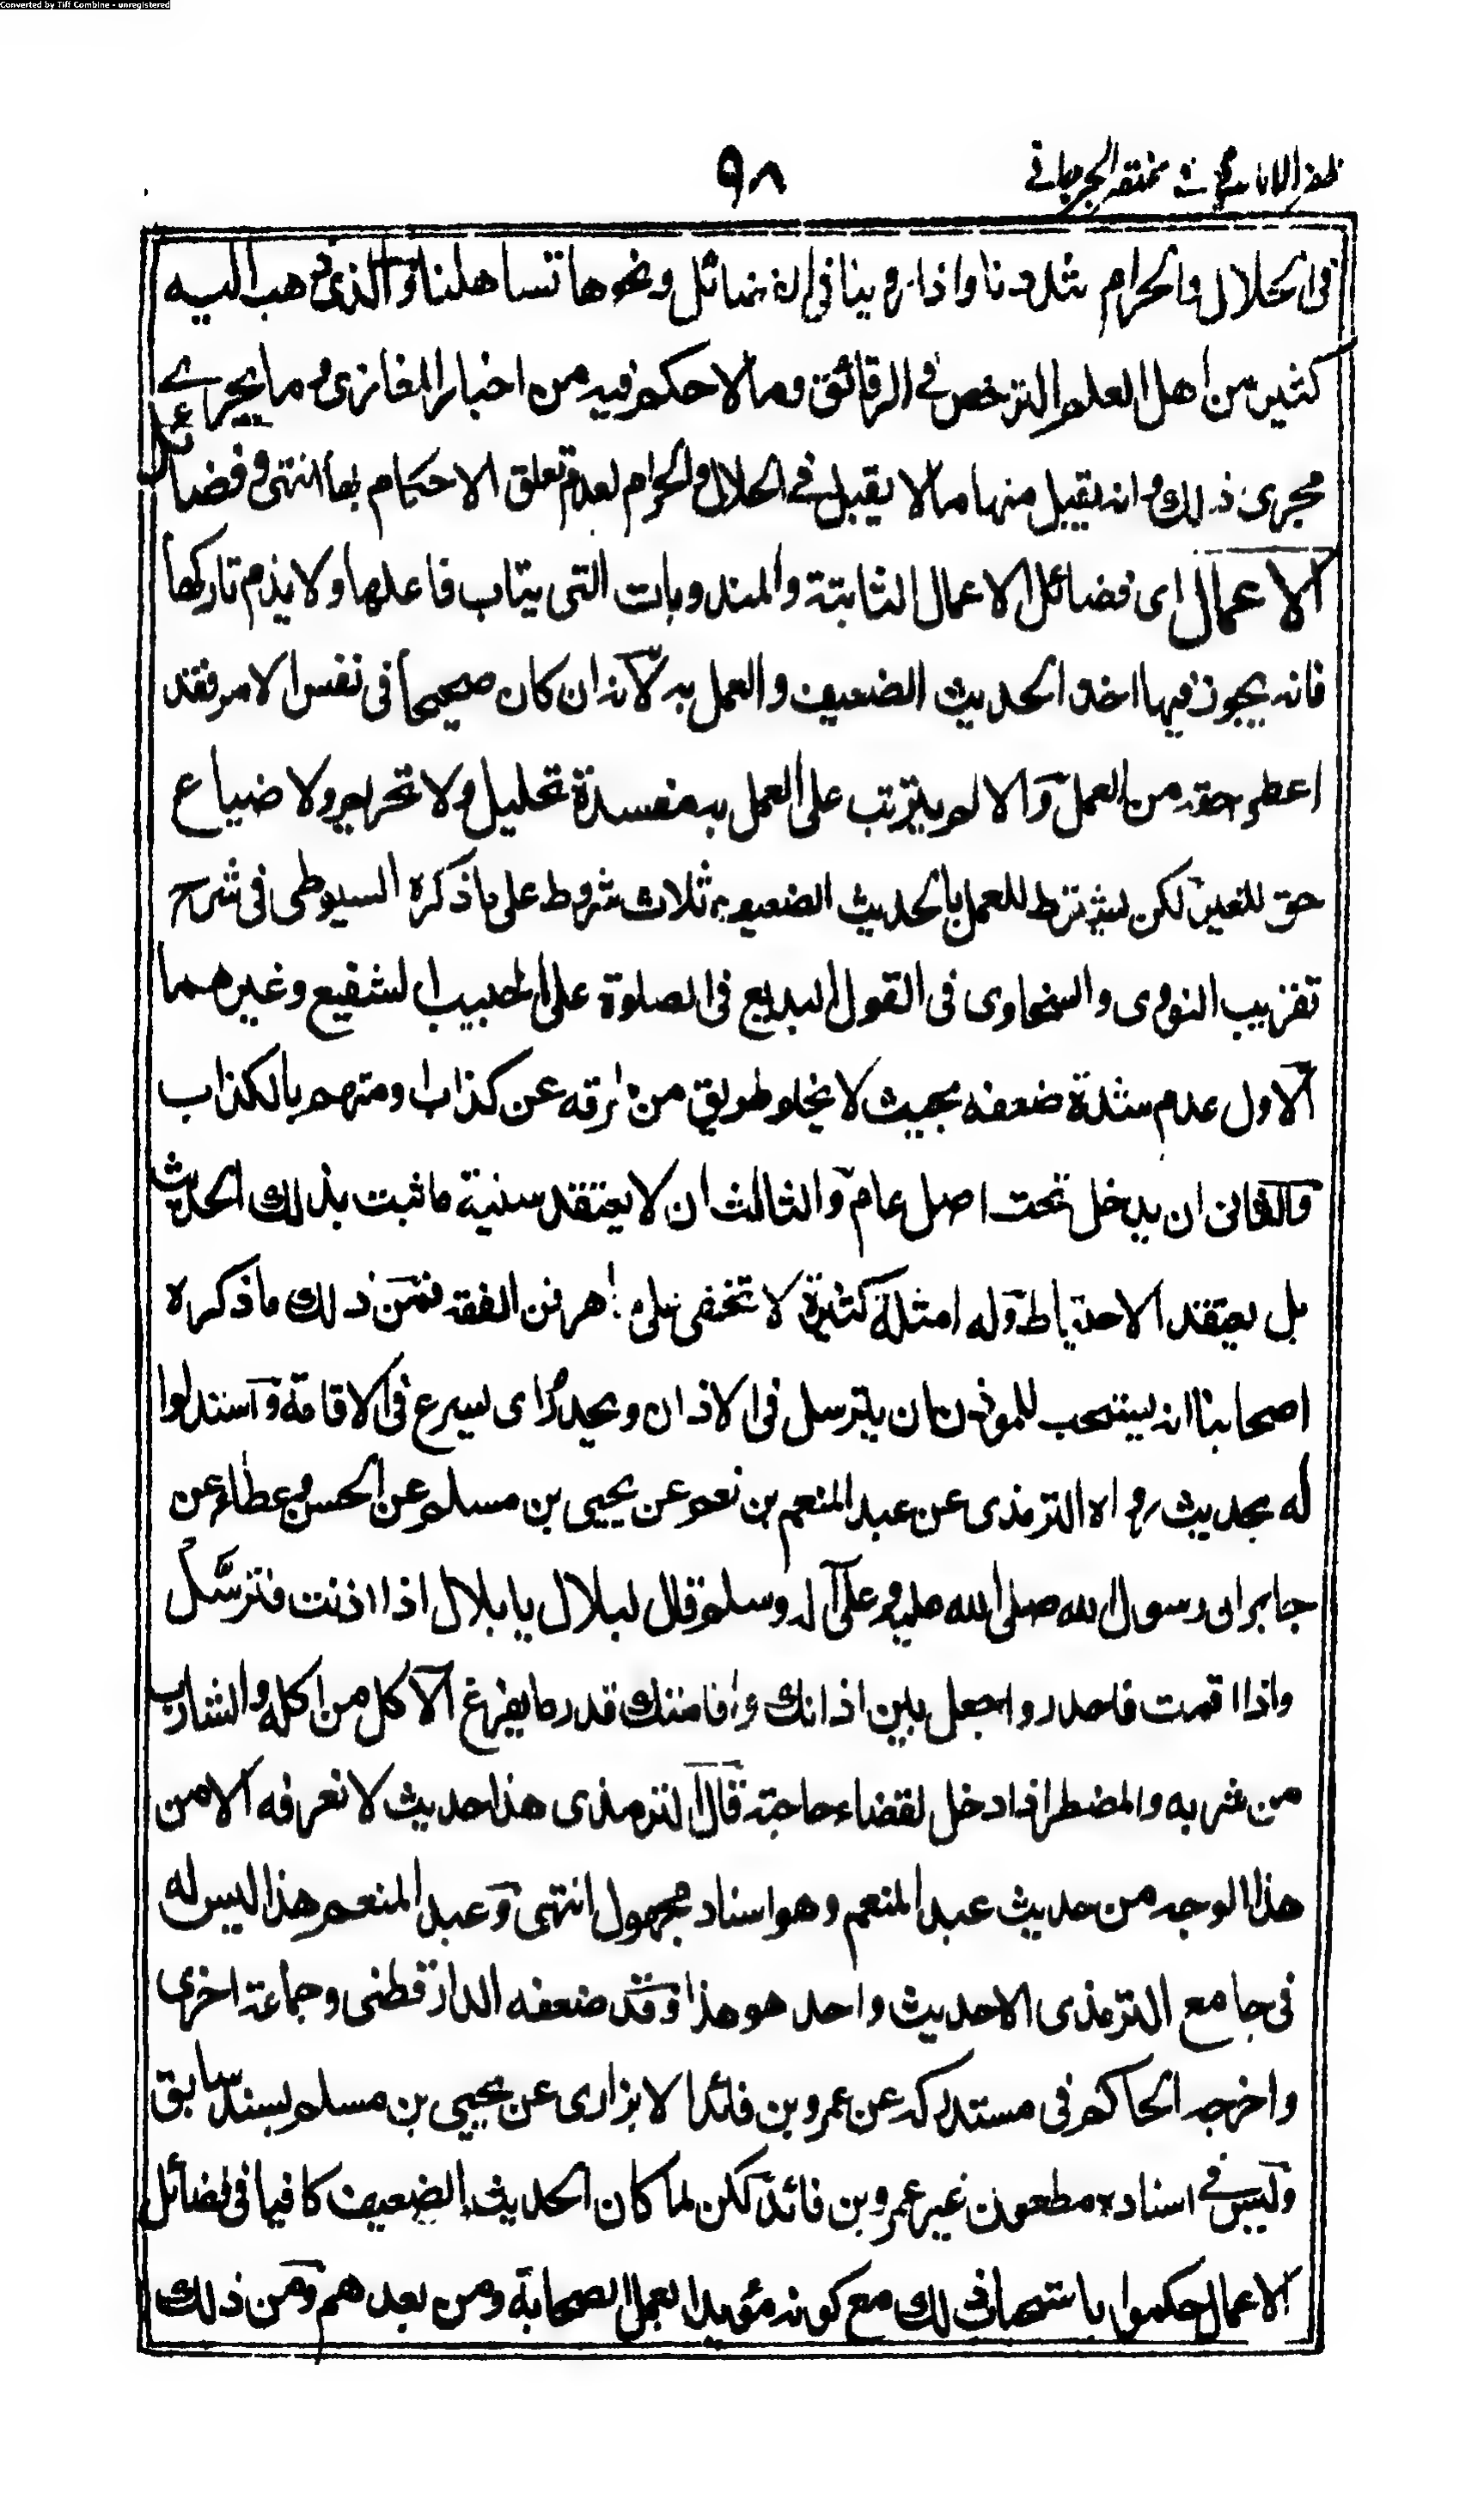 Converted by Tiff Combine - unregistered
ظفر الامانى فى مختصر الجرجانى
٩٨
فى الحلال والحرام شددنا واذا روينا فى الفضائل ونحوها تساهلنا والذى ذهب اليه
كثير من اهل العلم الترخص فى الرقائق وما لا حكم فيه من اخبار المغازى وما يجرى
مجرى ذلك وانه يقبل منها ما لا يقبل فى الحلال والحرام لعدم تعلق الاحكام بها انتهى وفضائل
الاعمال اى فضائل الاعمال الثابتة والمندوبات التى يثاب فاعلها ولا يذم تاركها
فانه يجوز فيها اخذ الحديث الضعيف والعمل به لانه ان كان صحيحا فى نفس الامر فقد
اعطى حقه من العمل والا لم يترتب على العمل به مفسدة تحليل ولا تحريم ولا ضياع
حق للغير لكن يشترط للعمل بالحديث الضعيف ثلاث شروط على ما ذكره السيوطى فى شرح
تقريب النووى والسخاوى فى القول البديع فى الصلوة على الحبيب الشفيع وغيرهما
الاول عدم شدة ضعفه بحيث لا يخلو طريق من طرقه عن كذاب او متهم بالكذب
والثانى ان يدخل تحت اصل عام والثالث ان لا يعتقد سنية ما ثبت بذلك الحديث
بل يعتقد الاحتياط وله امثلة كثيرة لا تخفى على ماهر فن الفقه فمن ذلك ما ذكره
اصحابنا انه يستحب للمؤذن ان يترسل فى الاذان ويحدر اى يسرع فى الاقامة واستدلوا
له بحديث رواه الترمذى عن عبد المنعم بن نعم عن يحيى بن مسلم عن الحسن وعطاء عن
جابر ان رسول الله صلى الله عليه وعلى آله وسلم قال لبلال يا بلال اذا اذنت فترسل
واذا اقمت فاحدر واجعل بين اذانك واقامتك قدر ما يفرغ الآكل من اكله والشارب
من شربه والمضطر اذا دخل لقضاء حاجته قال الترمذى هذا حديث لا نعرفه الا من
هذا الوجه من حديث عبد المنعم وهو اسناد مجهول انتهى وعبد المنعم هذا ليس له
فى جامع الترمذى الا حديث واحد هو هذا وقد ضعفه الدارقطنى وجماعة اخرى
واخرجه الحاكم فى مستدركه عن عمرو بن فائد الابزارى عن يحيى بن مسلم بسند سابق
وليس فى اسناده مطعون غير عمرو بن فائد لكن لما كان الحديث الضعيف كافيا فى فضائل
الاعمال حكموا باستحباب ذلك مع كونه مؤيدا بعمل الصحابة ومن بعدهم ومن ذلك